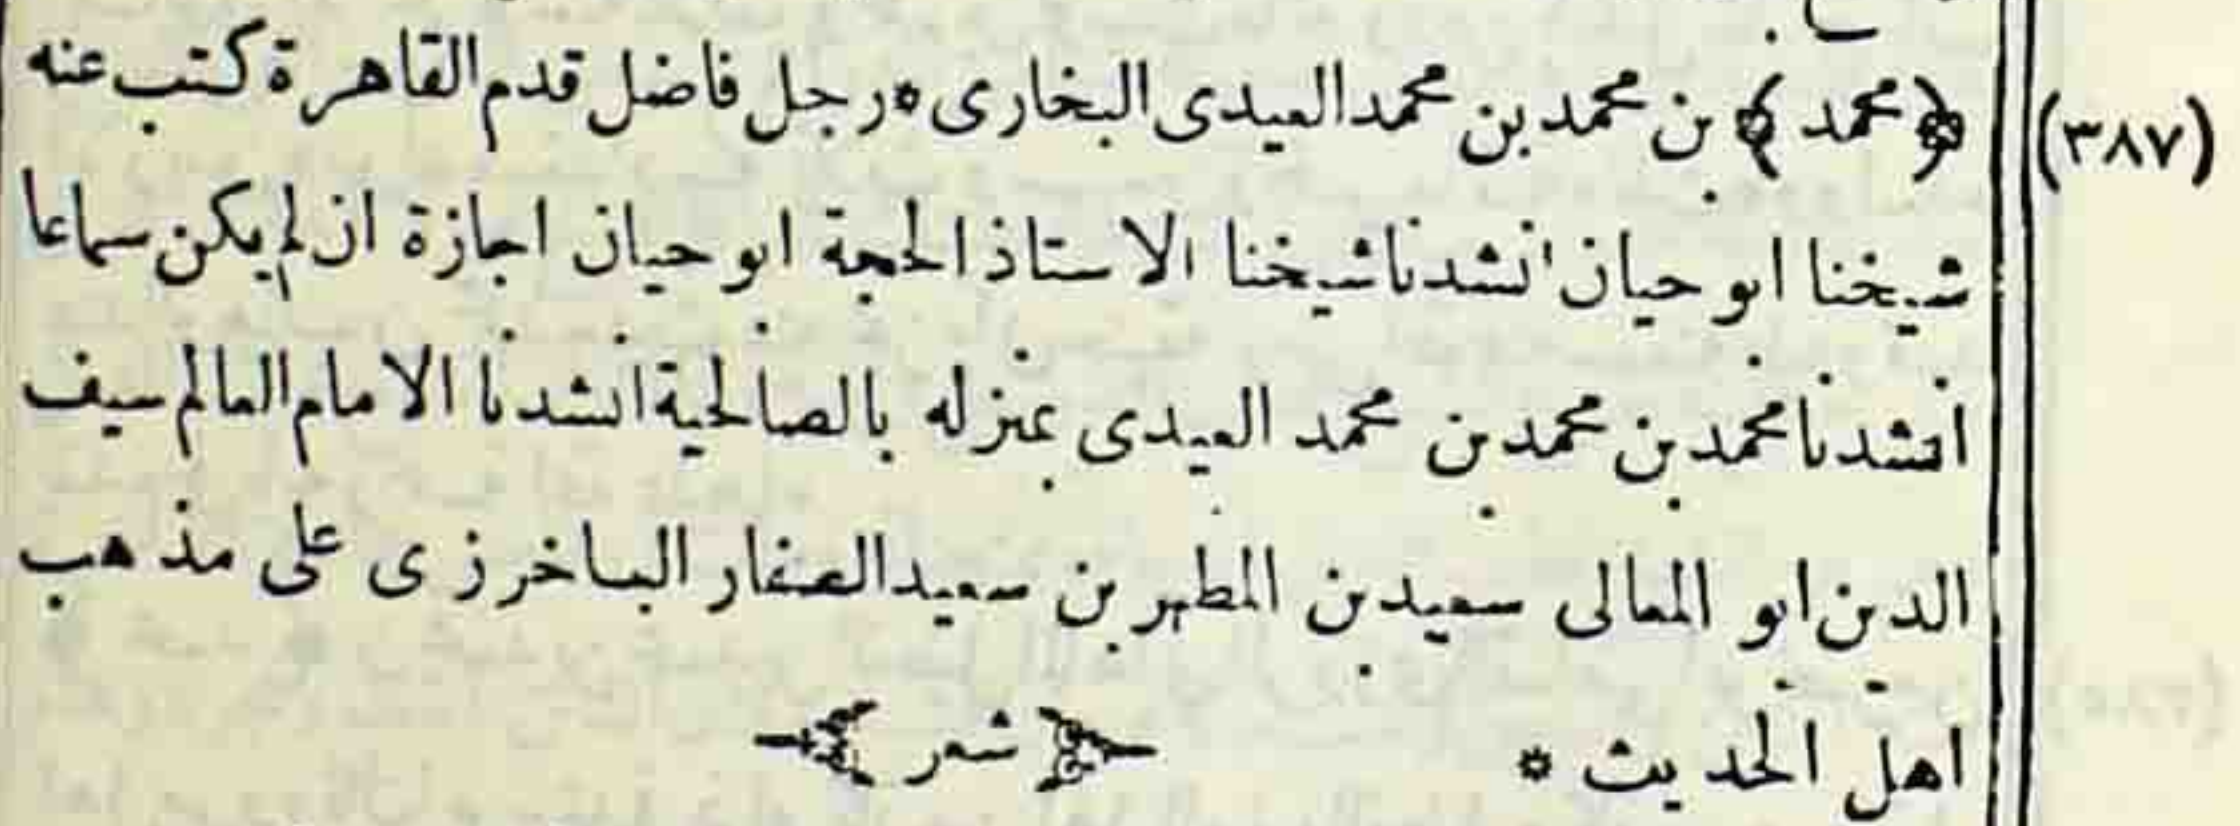 (٣٨٧) ﴿محمد﴾ بن محمد بن محمد العيدى البخارى * رجل فاضل قدم القاهرة كتب عنه
شيخنا ابو حيان انشدنا شيخنا الاستاذ الحجة ابو حيان اجازة ان لم يكن سماعا
انشدنا محمد بن محمد بن محمد العيدى بمنزله بالصالحية انشدنا الامام العالم سيف
الدين ابو المعالى سعيد بن المطهر بن سعيد الصفار الباخرزى على مذهب
اهل الحديث *
﴿ شعر ﴾